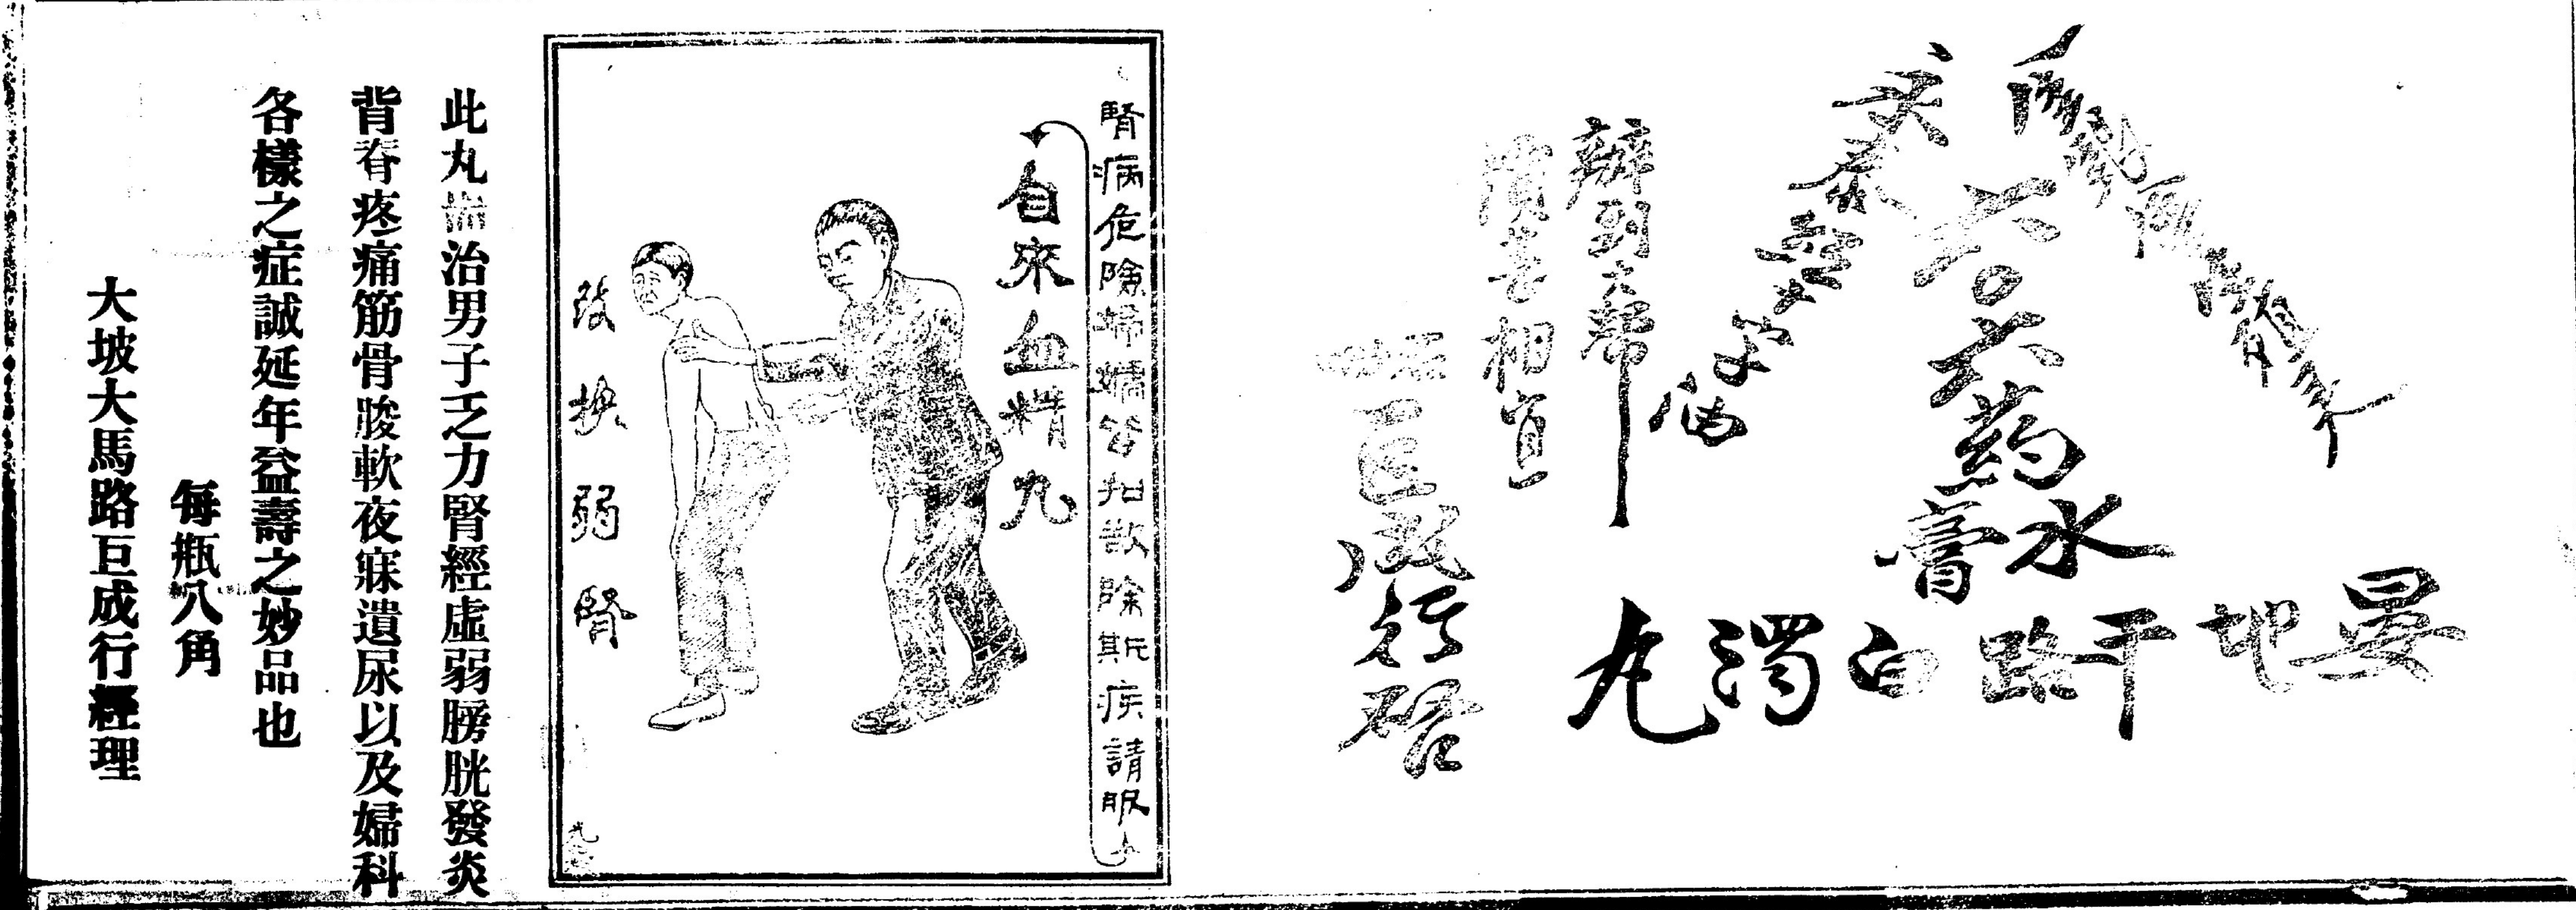 晏地干路白濁丸
六〇六药水
膏
辦到大幫
價甚相宜
巨成行啓
腎病危險婦孺皆知欲除斯疾請服
自來血精丸
改換弱腎
此丸耑治男子乏力腎經虛弱膀胱發炎
背脊疼痛筋骨酸軟夜寐遺尿以及婦科
各樣之症誠延年益壽之妙品也
每瓶八角
大坡大馬路巨成行經理